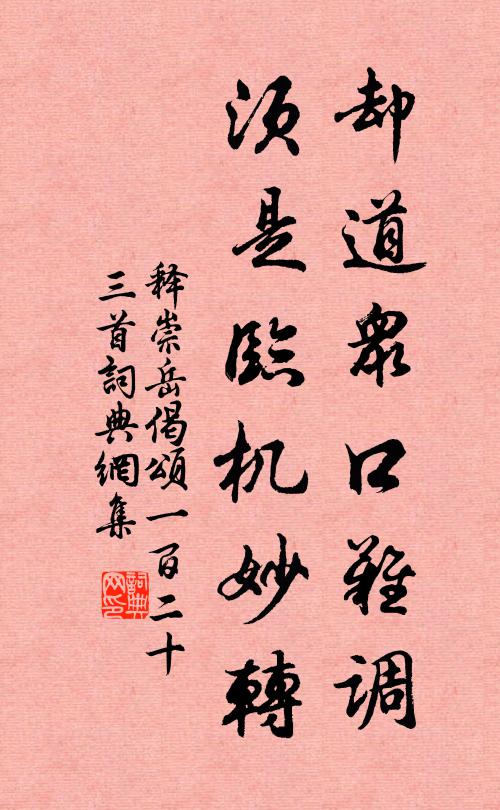 却道眾口難調
須是臨机妙轉
释崇岳偈頌一百二十
三首詞典網集
詞典
网印